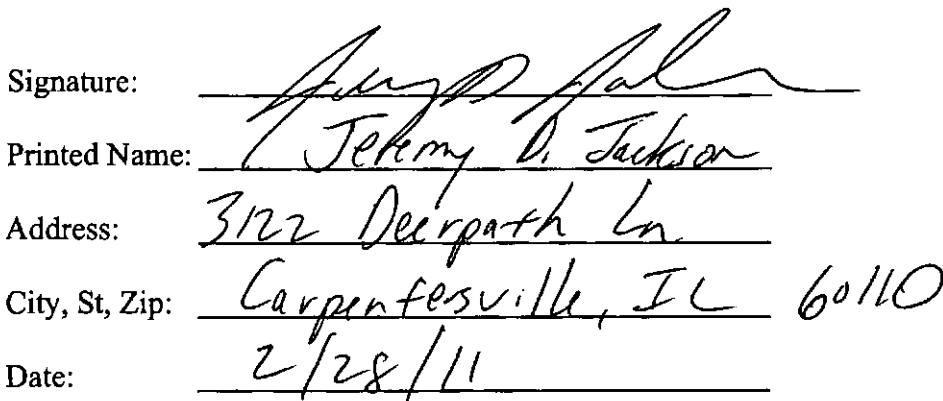 Signature:
Printed Name: Jeremy D. Jackson
Address: 3122 Deerpath Ln.
City, St, Zip: Carpentersville, IL 60110
Date: 2/28/11